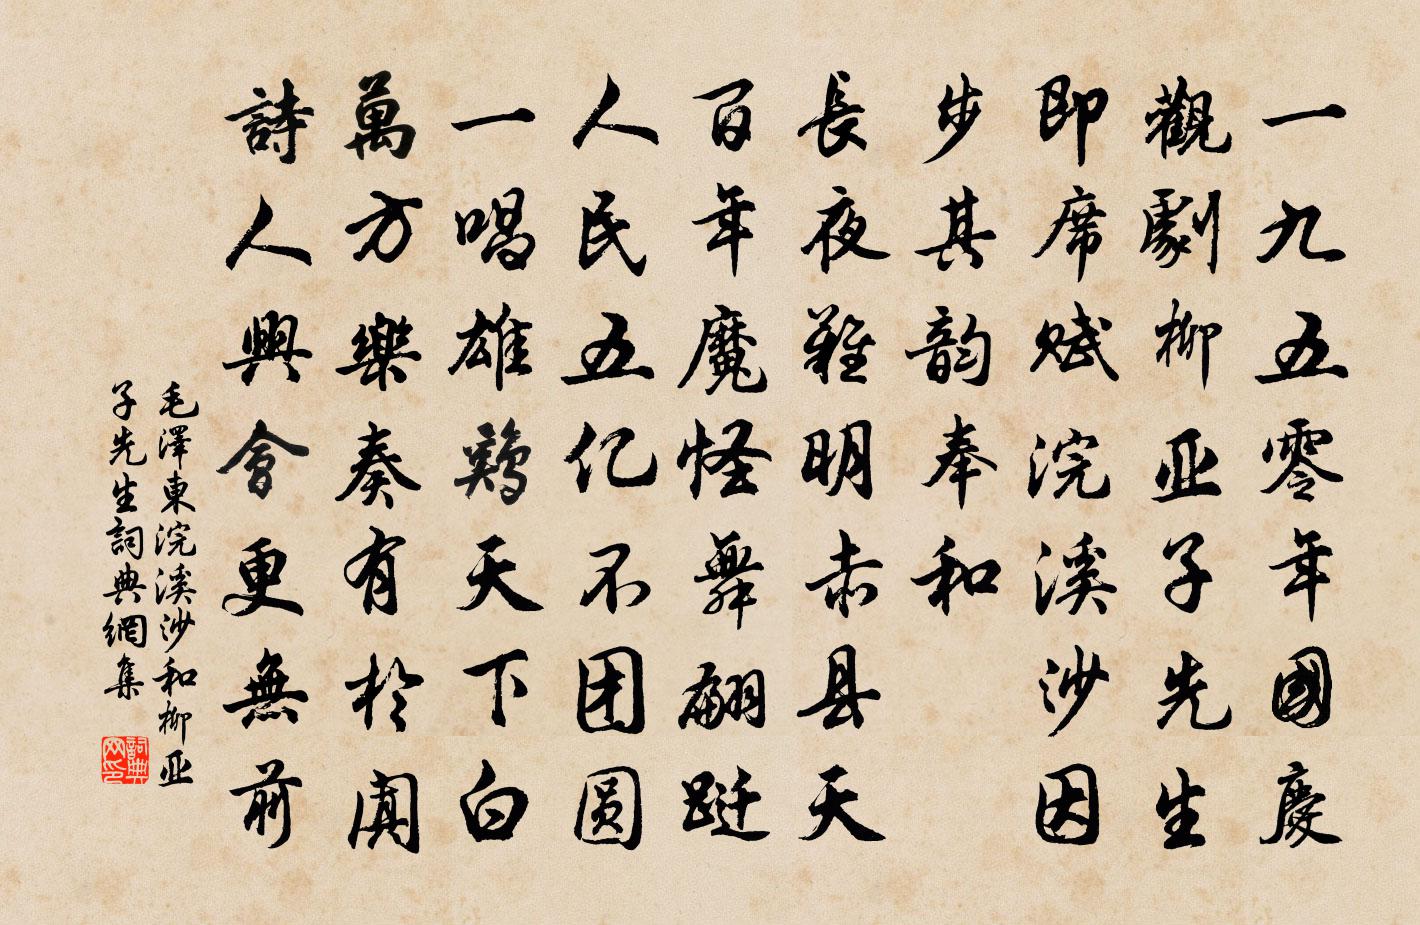 一九五零年國慶
觀劇柳亚子先生
即席赋浣溪沙因
步其韵奉和
長夜難明赤县天
百年魔怪舞翩跹
人民五亿不团圆
一唱雄鷄天下白
萬方樂奏有於阗
詩人興會更無前
毛澤東浣溪沙和柳亚
子先生詞典網集
詞典网印